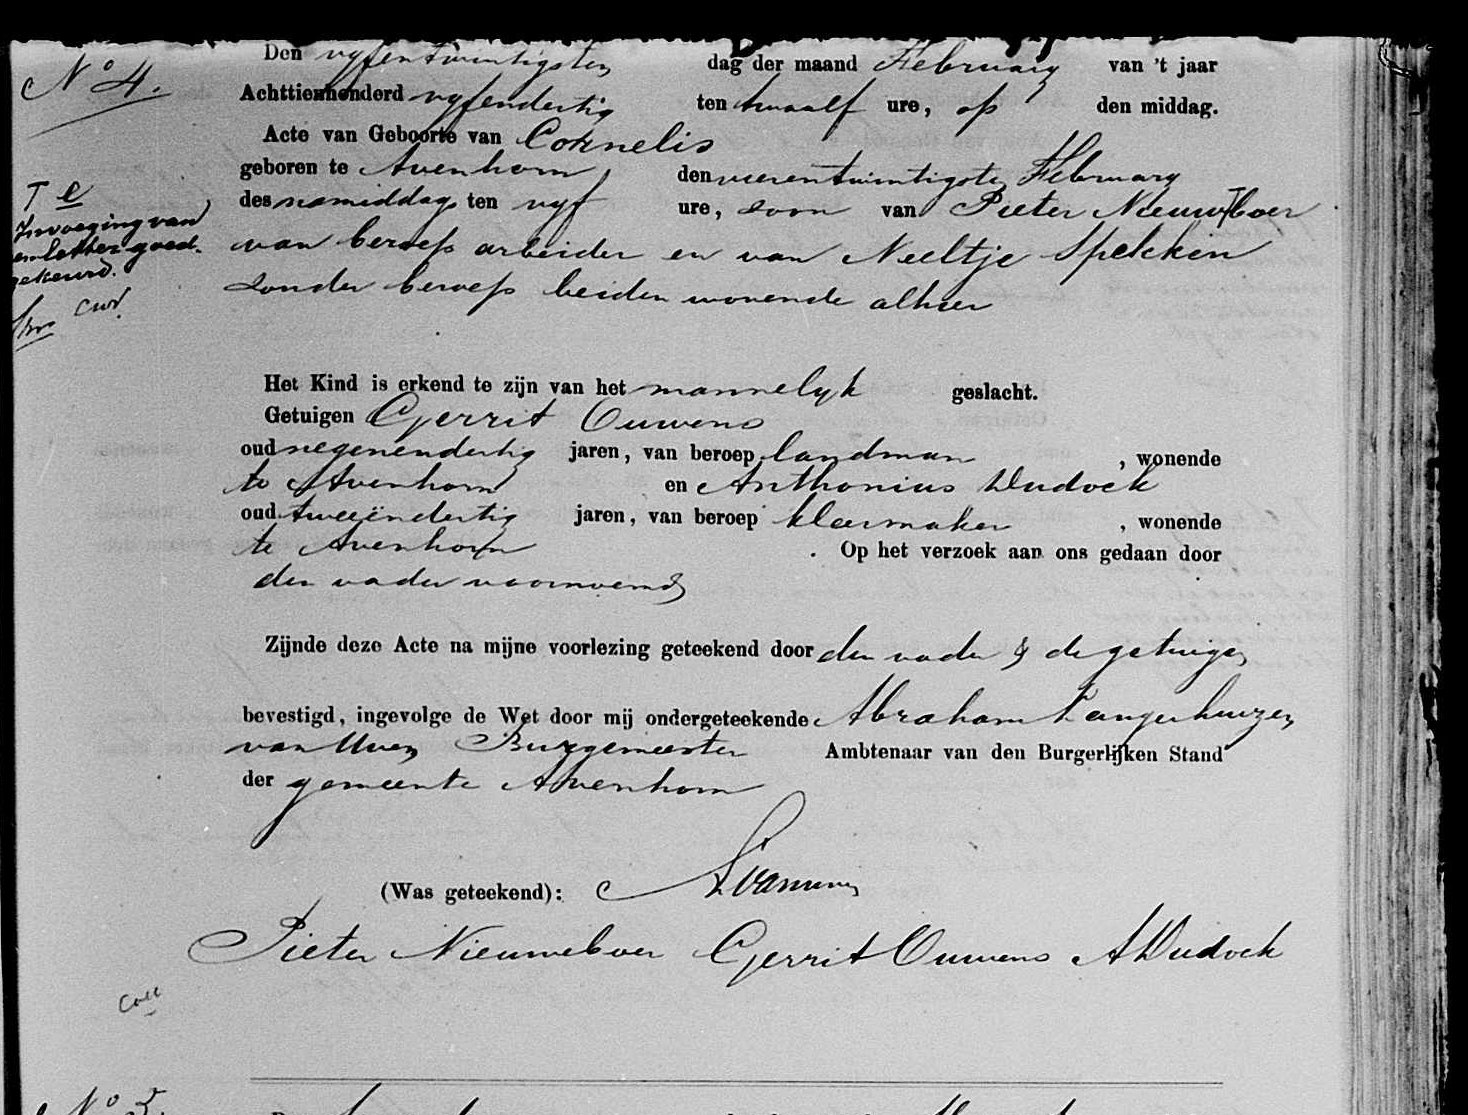 Nº 4.
Den vyfentwintigsten dag der maand February van 't jaar
Achttienhonderd vyfendertig ten twaalf ure, op den middag.
Acte van Geboorte van Cornelis
geboren te Avenhorn den vierentwintigsten February
des namiddags ten vyf ure, zoon van Pieter Nieuw⊤boer
van beroep arbeider en van Neeltje Spekken
zonder beroep beiden wonende alhier
⊤ e
Invoeging van
een letter goed-
gekeurd.
Het Kind is erkend te zijn van het mannelyk geslacht.
Getuigen Gerrit Ouwens
oud negenendertig jaren, van beroep landman, wonende
te Avenhorn en Anthonius Dudock
oud tweeëndertig jaren, van beroep kleermaker, wonende
te Avenhorn. Op het verzoek aan ons gedaan door
den vader voornoemd
Zijnde deze Acte na mijne voorlezing geteekend door den vader & de getuigen
bevestigd, ingevolge de Wet door mij ondergeteekende Abraham Langerhuizen
van Uven Burgemeester Ambtenaar van den Burgerlijken Stand
der gemeente Avenhorn
(Was geteekend): A van Uven
Pieter Nieuweboer Gerrit Ouwens A Dudock
Coll
Nº 5.